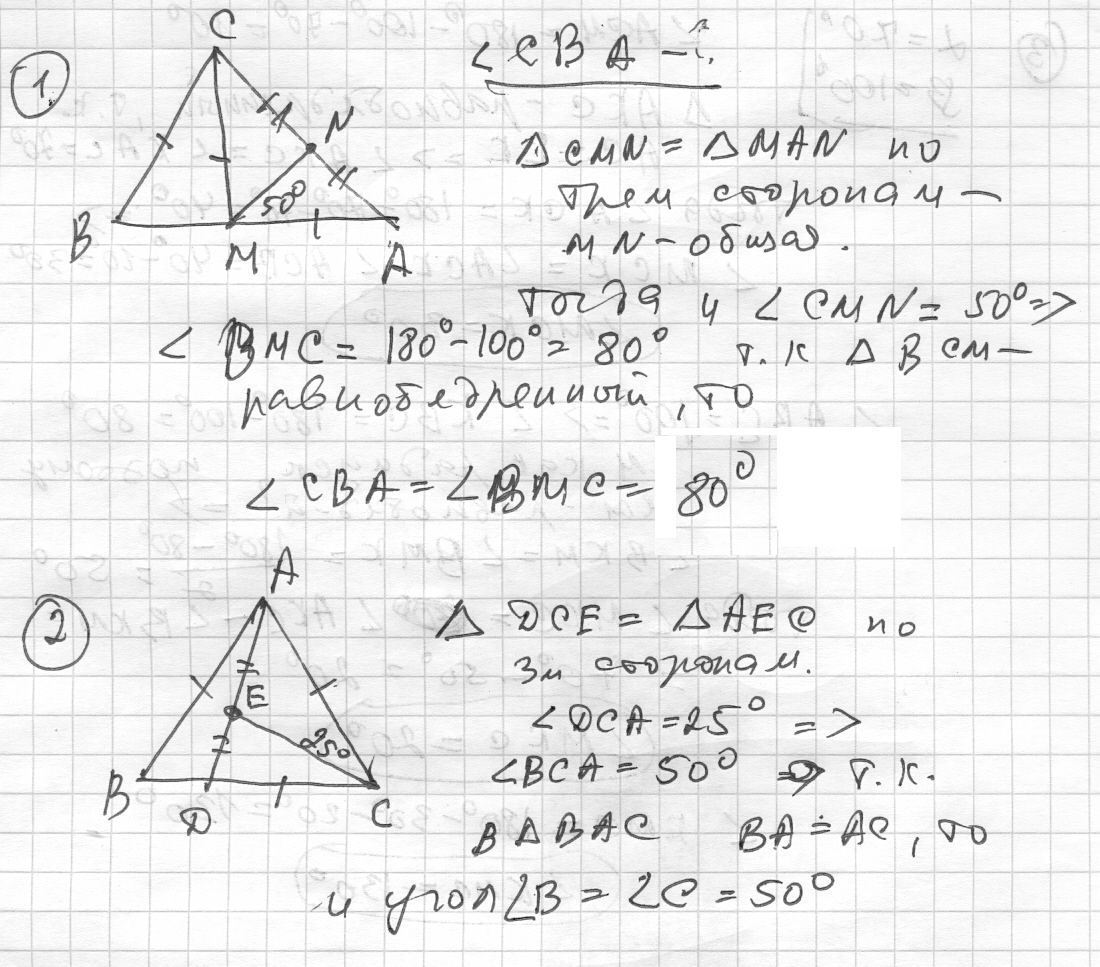 1.
C
N
50°
B
M
A
∠CBA - ?
△CMN = △MAN по
трем сторонам -
MN - общая.
Тогда и ∠CMN = 50° =>
∠BMC = 180° - 100° = 80° т.к △BCM -
равнобедренный, то
∠CBA = ∠BMC = 80°
2
A
E
25°
B
D
C
△ DCE = △AEC по
3м сторонам.
∠DCA = 25° =>
∠BCA = 50° => т.к.
в △BAC BA = AC, то
и угол ∠B = ∠C = 50°